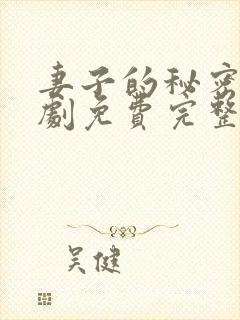 妻子的秘密
劇免費完整
吴健